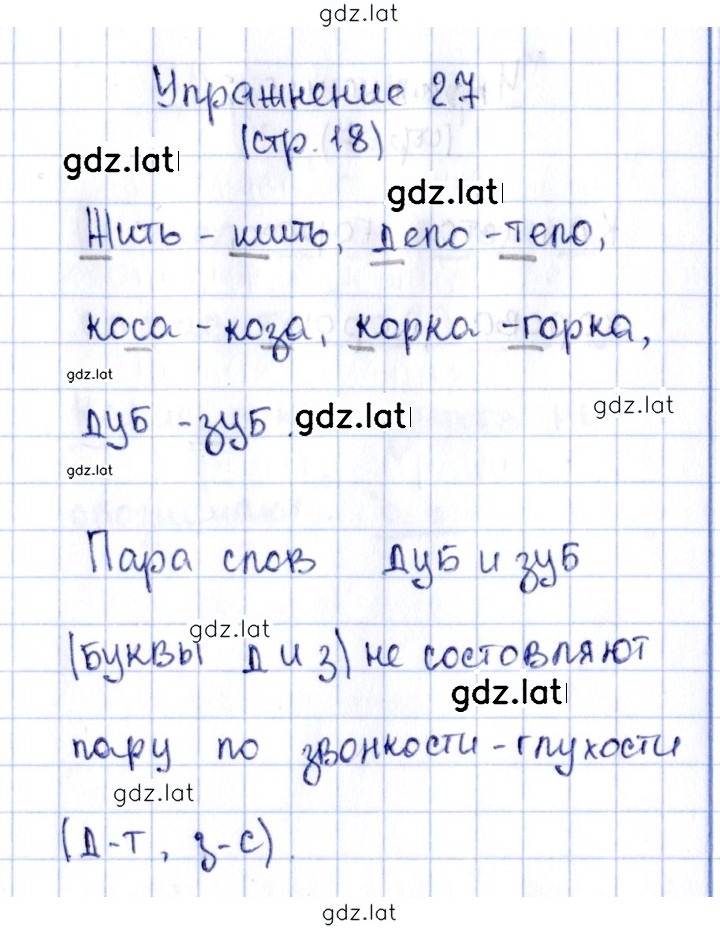 gdz.lat
Упражнение 27
(стр. 18)
gdz.lat
gdz.lat
Жить - шить, дело - тело,
коса - коза, корка - горка,
gdz.lat
gdz.lat
дуб - зуб.
gdz.lat
gdz.lat
Пара слов дуб и зуб
gdz.lat
(буквы д и з) не составляют
gdz.lat
пару по звонкости - глухости
gdz.lat
(д - т, з - с).
gdz.lat